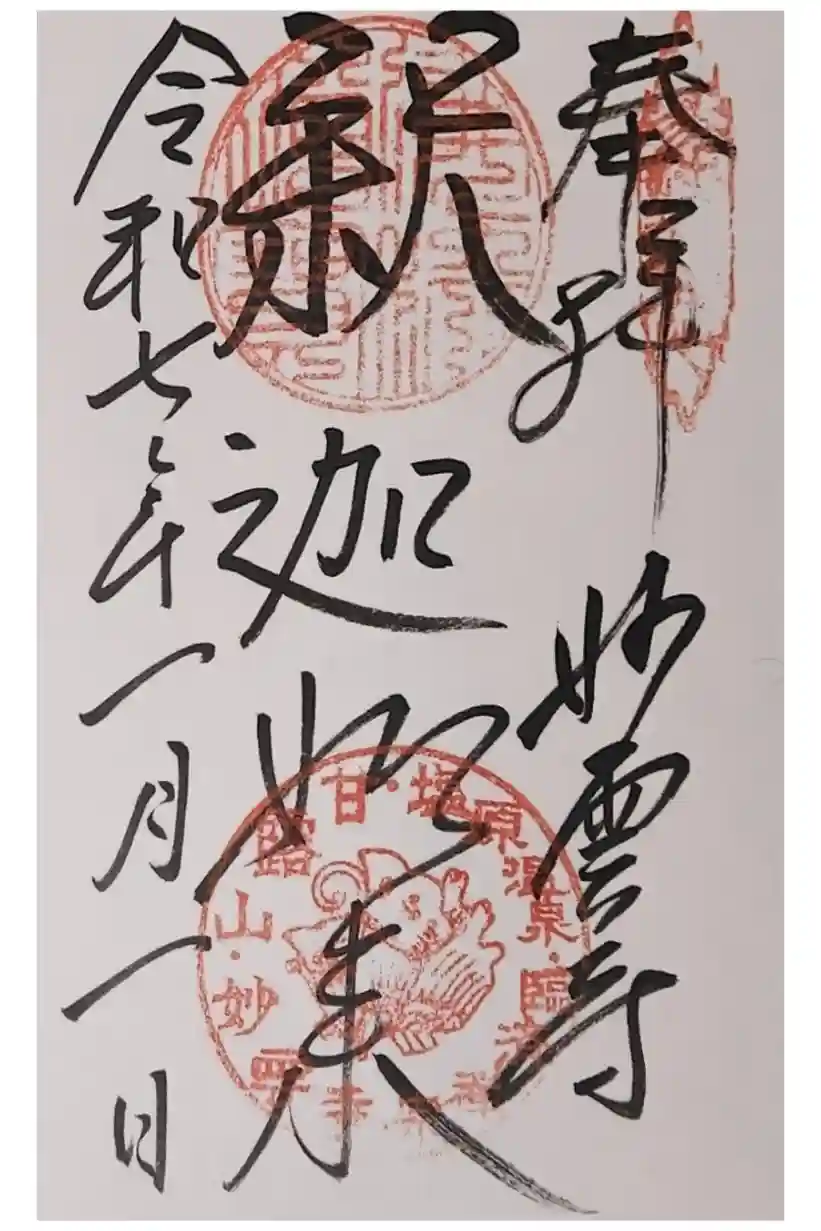 奉拝
妙雲寺
釈
迦
如来
令和七年一月一日
塩原温泉・臨済禅宗
甘露山・妙雲寺